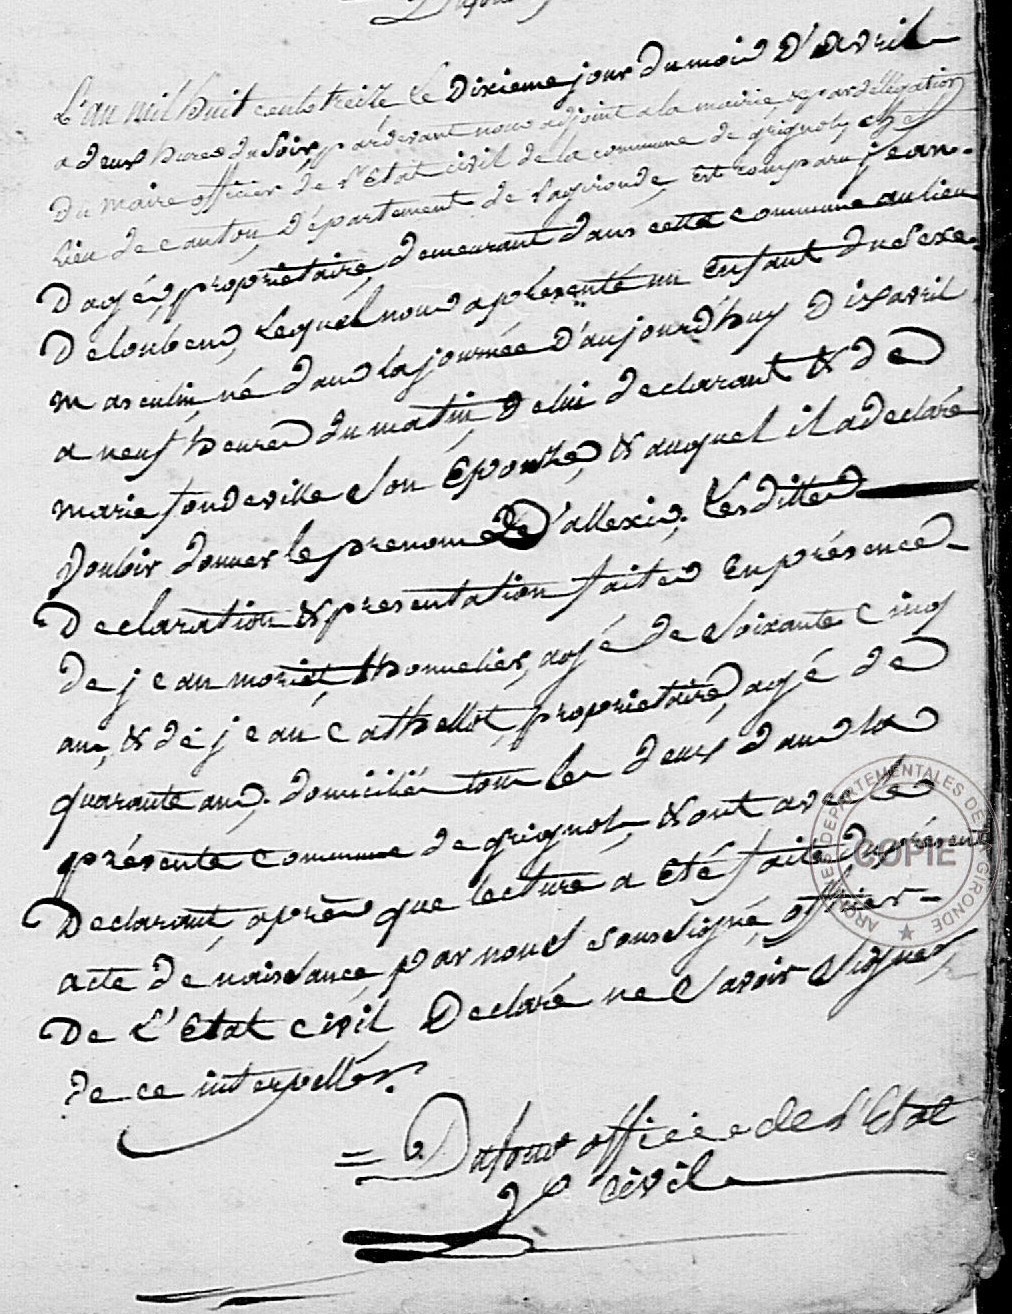 L'an mil huit cents treize Le Dixieme jour du mois D'Avril
a deux hures du Soir, pardevant nous adjoint a la mairie & par dellegation
du maire officier de l'Etat civil de la commune de grignols chef
lieu de canton, Département de la gironde, est comparu jean
Dagés, propriétaire, demeurant dans cette commune au lieu
De loubens, Lequel nous a présenté un Enfant du Sexe
masculin né dans la journée D'aujourd'huy Dix avril
a neuf heures du matin De lui declarant & de
marie fondeville Son Epouze, & auquel il a Declaré
Vouloir donner le prenom De D'allexis. Les dittes
Declaration & presentation faites En présence
de jean moriet, thonnelier, agé de Soixante Cinq
ans, & de jean Cathellot, propriétaire, agé de
quarante ans, domiciliés tous les deux dans la
présente Commune de grignols, & ont avec le
Declarant après que lecture a Eté faite, du présent
acte de naissance, par nous Soussigné, officier
De L'Etat civil Declaré ne Savoir Signer
de ce interpellés.
Dafour officiée de l'Etat
civil
ARCHIVES DEPARTEMENTALES DE LA GIRONDE
COPIE